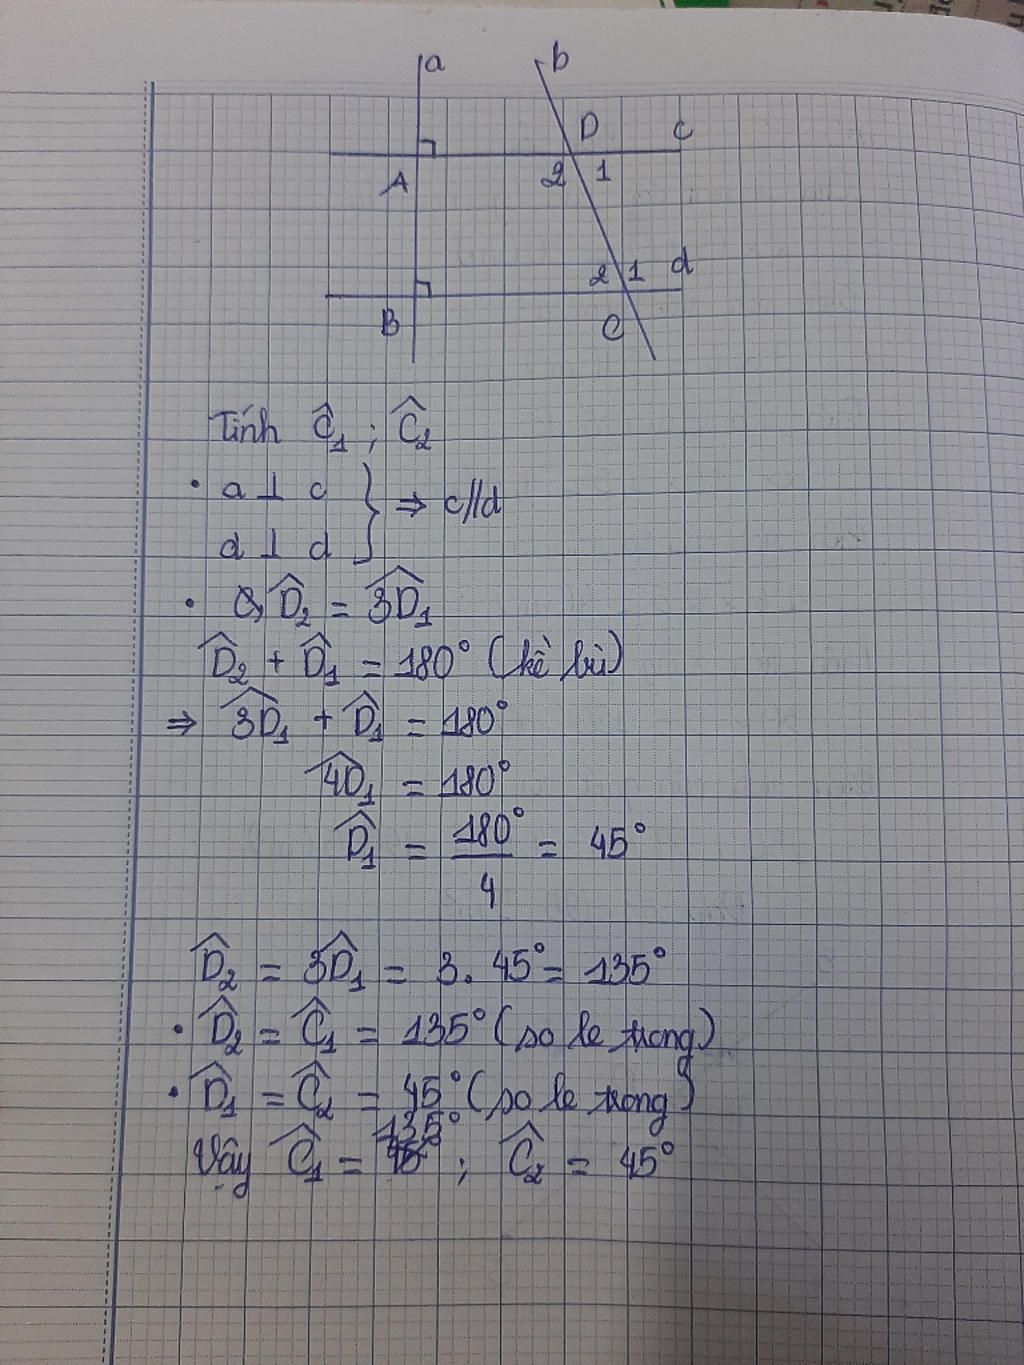 a b
D c
A 2 1
2 1 d
B C
Tính Ĉ₁ ; Ĉ₂
• a ⊥ c } ⇒ c//d
d ⊥ d
• D̂₂ = 3D̂₁
D̂₂ + D̂₁ = 180° (kề bù)
⇒ 3D̂₁ + D̂₁ = 180°
4D̂₁ = 180°
D̂₁ = 180°/4 = 45°
D̂₂ = 3D̂₁ = 3. 45° = 135°
• D̂₂ = Ĉ₁ = 135° (so le trong)
• D̂₁ = Ĉ₂ = 45° (so le trong)
Vậy Ĉ₁ = 135° ; Ĉ₂ = 45°